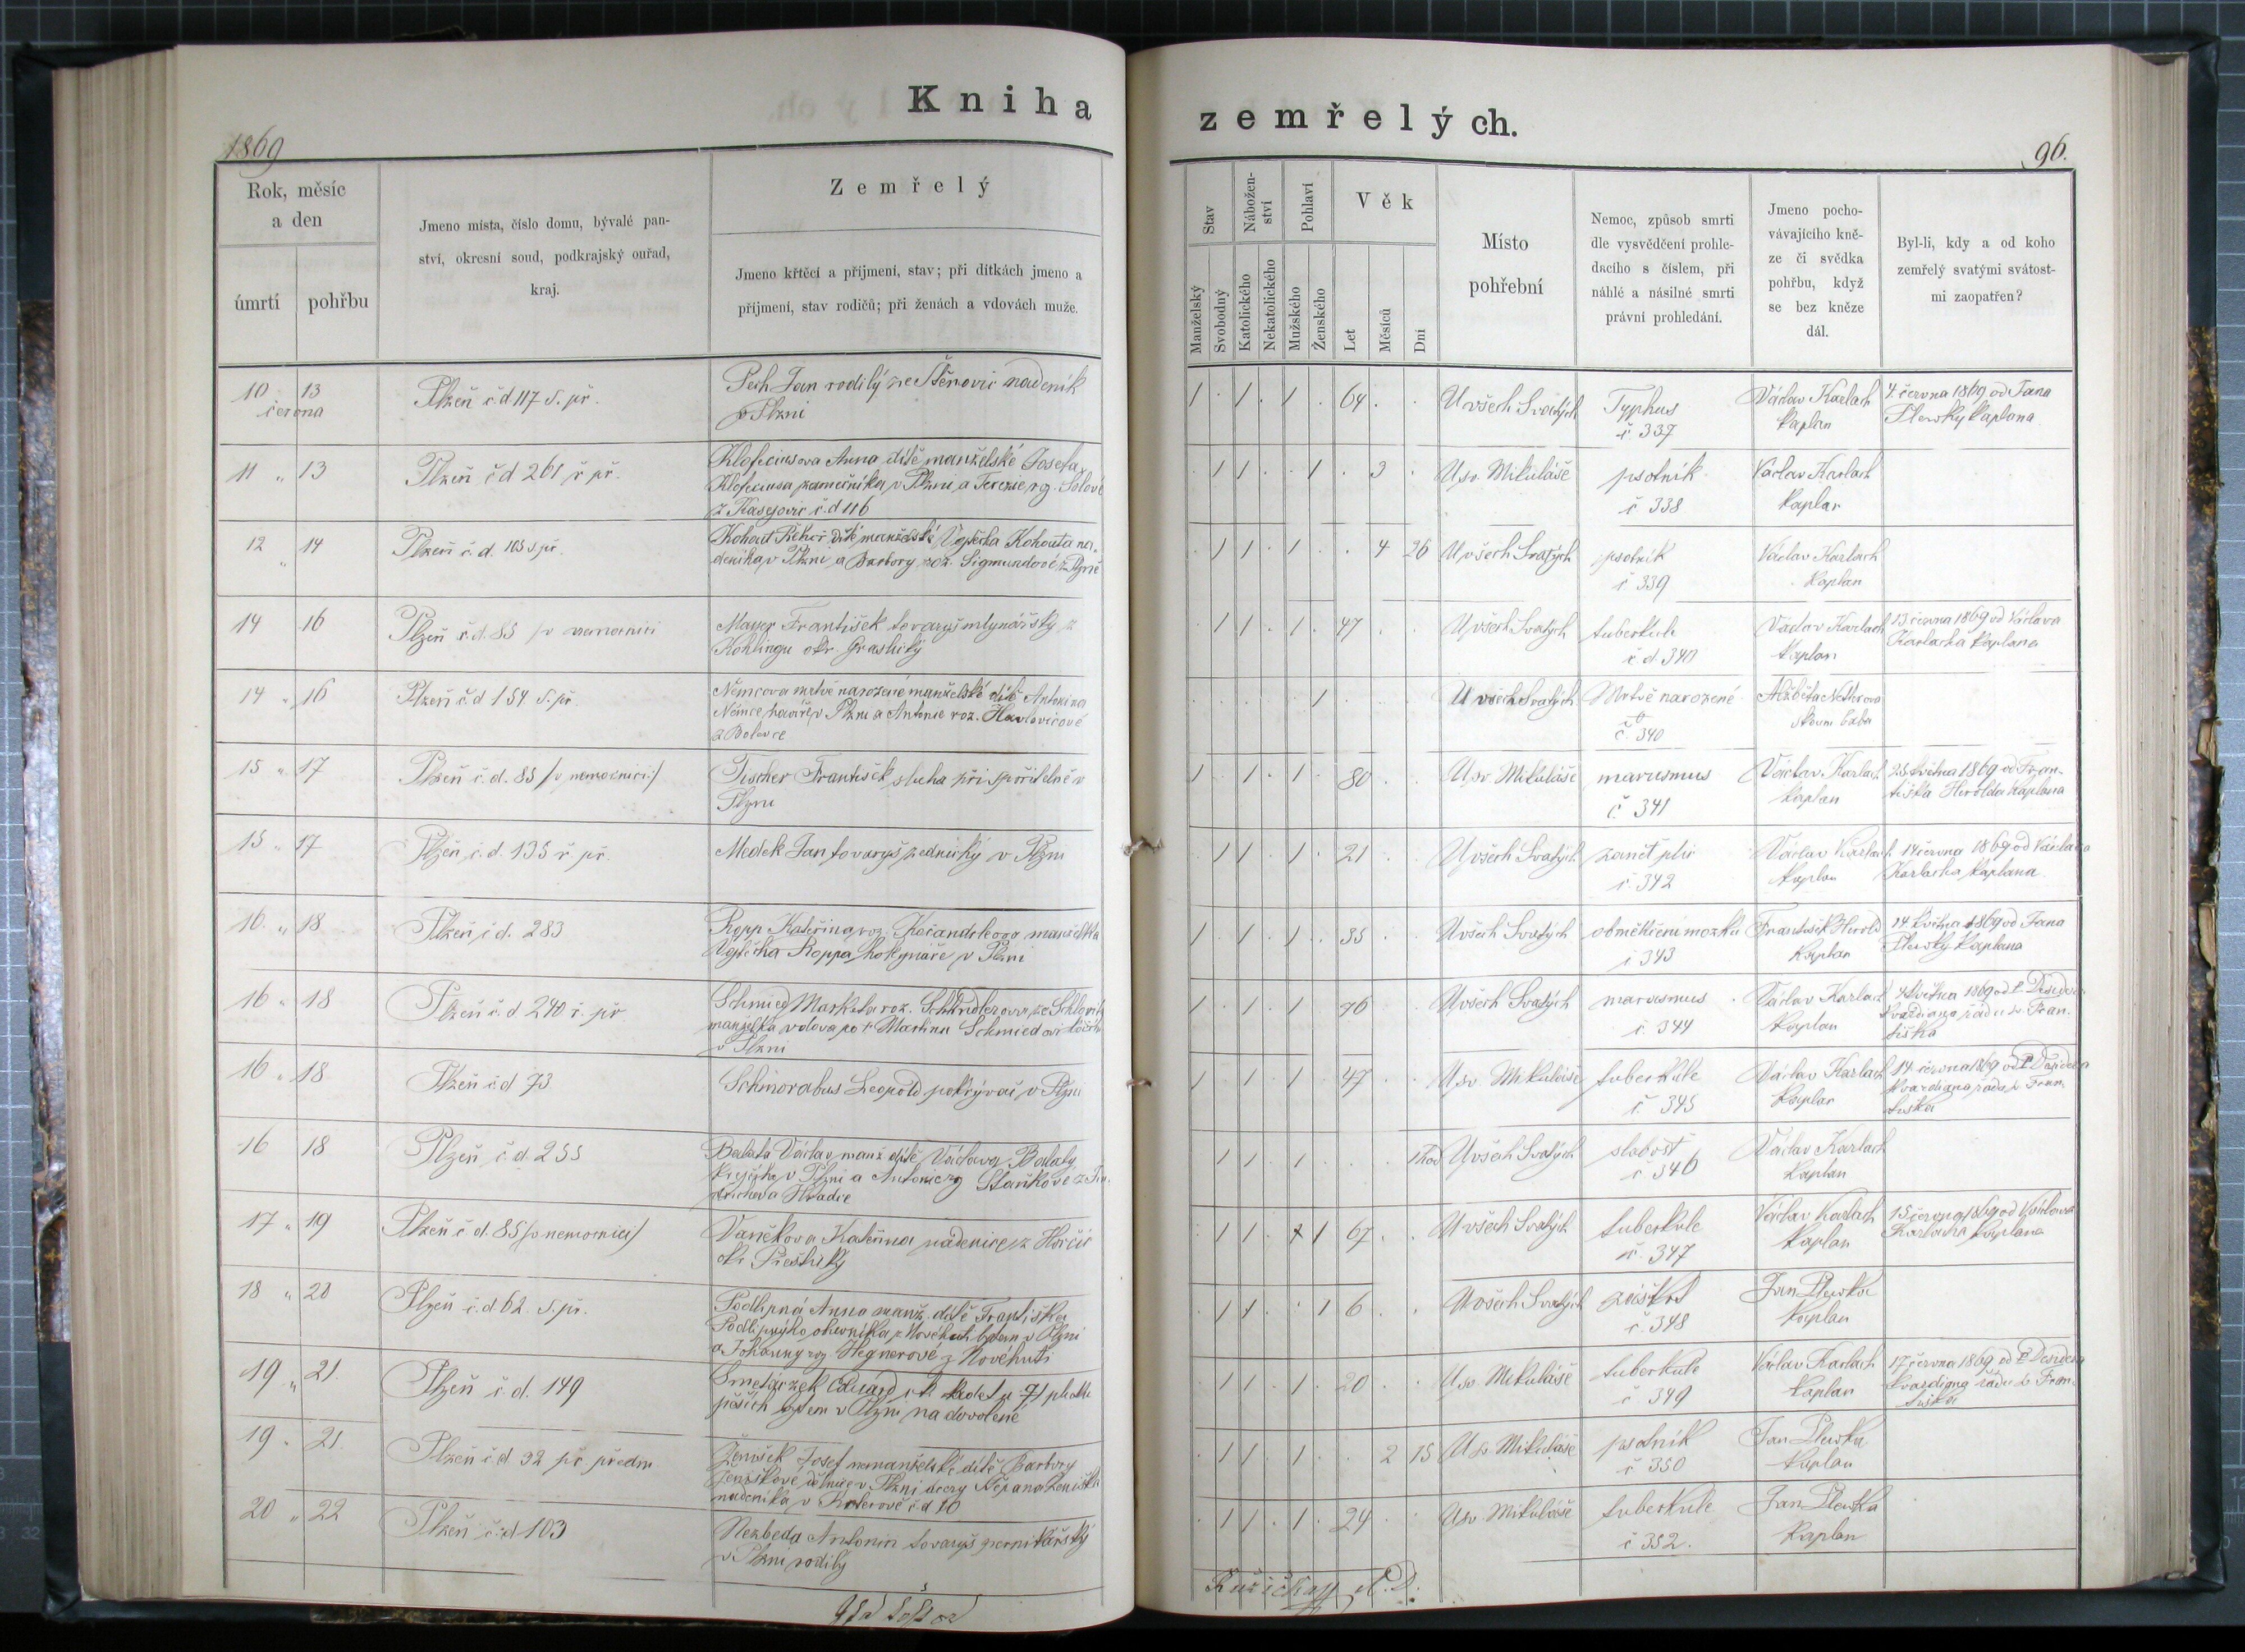 Kniha
zemřelých.
1869
96.
Rok, měsíc
a den
úmrtí
pohřbu
Jmeno místa, číslo domu, bývalé pan-
ství, okresní soud, podkrajský ouřad,
kraj.
Zemřelý
Jmeno křtěcí a příjmení, stav; při dítkách jmeno a
příjmení, stav rodičů; při ženách a vdovách muže.
Stav
Manželský
Svobodný
Nábožen-
ství
Katolického
Nekatolického
Pohlaví
Mužského
Ženského
Věk
Let
Měsíců
Dní
Místo
pohřební
Nemoc, způsob smrti
dle vysvědčení prohle-
dacího s číslem, při
náhlé a násilné smrti
právní prohledání.
Jmeno pocho-
vávajícího kně-
ze či svědka
pohřbu, když
se bez kněze
dál.
Byl-li, kdy a od koho
zemřelý svatými svátost-
mi zaopatřen?
10 13
června
Plzeň č.d 117 s. př.
Pech Jan rodilý ze Štěnovic nadeník
v Plzni
1 . 1 . 1 . 64 . .
U všech Svatých
Typhus
č 337
Václav Karlach
kaplan
4. června 1869 od Jana
Slewky kaplana
11 „ 13
Plzeň č d 261 ř př.
Anna dítě manželské Josefa
v Plzni a Terezie rg.
z Kasejovic č.d 116
. 1 1 . . 1 . 3 .
U sv. Mikuláše
psotník
č 338
Václav Karlach
kaplan
12 „ 14
Plzeň č. d. 105 s. př.
Kohout dítě manželské Vojtěcha Kohouta na-
deníka v Plzni a Barbory roz. Sigmundové z Plzně
. 1 1 . 1 . . 4 26
U všech Svatých
psotník
č 339
Václav Karlach
kaplan
14 16
Plzeň č.d. 85 /v nemocnici
Mayer František tovaryš mlynářský z
Kohlingu okr. Graslický
. 1 1 . 1 . 47 . .
U všech Svatých
tuberkule
č.d 340
Václav Karlach
kaplan
13 června 1869 od Václava
Karlacha kaplana
14 „ 16
Plzeň č.d 154 s. př.
Němcova mrtvě narozené manželské dítě Antonína
Němce, havíře v Plzni a Antonie roz. Havlovicové
z Bolevce
1
U všech Svatých
Mrtvě narozené
č. 340
Alžběta
baba
15 „ 17
Plzeň č. d. 85 /v nemocnici/
Tischer František sluha při spořitelně v
Plzni
1 . 1 . 1 . 80 . .
U sv. Mikuláše
marasmus
č. 341
Václav Karlach
kaplan
25 května 1869 od Fran-
tiška Herolda kaplana
15 „ 17
Plzeň č. d. 135 ř př.
Medek Jan tovaryš zednický v Plzni
. 1 1 . 1 . 21 . .
U všech Svatých
zánět plic
č. 342
Václav Karlach
kaplan
14 června 1869 od Václava
Karlacha kaplana
16 „ 18
Plzeň č d. 283
Ropp Kateřina roz. manželka
Vojtěcha Roppa hokynáře v Plzni
1 . 1 . 1 . 35 . .
U všech Svatých
obměkčení mozku
č 343
František Herold
kaplan
14 května 1869 od Jana
Slewky kaplana
16 „ 18
Plzeň č. d 240 ř. př
Schmied Marketa roz.
manželka vdova po † Martinu Schmiedovi
v Plzni
1 . 1 . 1 76 . .
U všech Svatých
marasmus
č. 344
Václav Karlach
kaplan
4 května 1869 od P.
kvardiana řádu sv. Fran-
tiška
16 „ 18
Plzeň č.d 73
Schinorabus Leopold pokrývač v Plzni
1 . 1 . 1 . 47 . .
U sv. Mikuláše
tuberkule
č 345
Václav Karlach
kaplan
14 června 1869 od P.
kvardiana řádu sv Fran-
tiška
16 18
Plzeň č.d. 255
Balata Václav manž dítě Václava Balaty
v Plzni a Antonie rg
Hradce
. 1 1 . 1 . . .
U všech Svatých
slabost
č 346
Václav Karlach
kaplan
17 „ 19
Plzeň č.d. 85 /v nemocnici/
Vaněčkova Kateřina nadenice z Horčic
okr Přeštický
. 1 1 . 1 67 . .
U všech Svatých
tuberkule
č. 347
Václav Karlach
kaplan
15 června 1869 od Václava
Karlacha kaplana
18 „ 20
Plzeň č.d. 62. s. př.
Podlipná Anna manž. dítě Františka
v Plzni
a Johanny roz. Hegnerové z
. 1 1 . . 1 6 . .
U všech Svatých
záškrt
č. 348
Jan Slewka
kaplan
19 „ 21.
Plzeň č. d. 149
Eduard c k kadet u 71 pluku
pěších v Plzni na dovolené
. 1 1 . 1 . 20 . .
U sv. Mikuláše
tuberkule
č 349
Václav Karlach
kaplan
17 června 1869 od P.
kvardiana řádu sv Fran-
tiška
19 „ 21.
Plzeň č.d 32 př předm
Ženíšek Josef nemanželské dítě Barbory
Ženíškové dělnice v Plzni dcery Štěpana Ženíška
nadeníka v č.d 10
. 1 1 . 1 . . 2 15
U sv. Mikuláše
psotník
č 350
Jan Slewka
kaplan
20 „ 22
Plzeň č.d 103
Nezbeda Antonín tovaryš perníkářský
v Plzni rodilý
. 1 1 . 1 . 24 . .
U sv. Mikuláše
tuberkule
č 352.
Jan Slewka
kaplan